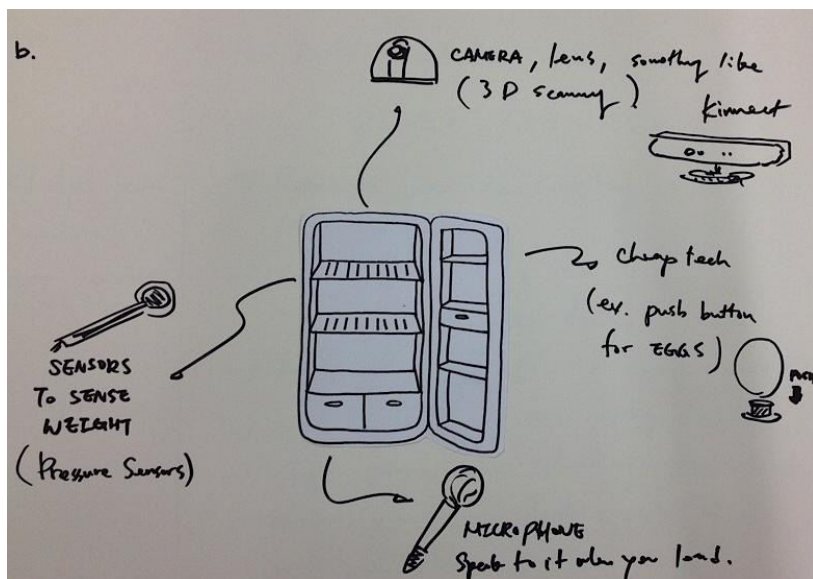 b.
CAMERA, lens, somethng like
(3D scanning)
Kinnect
cheap tech
(ex. push button
for EGGS)
PUSH
SENSORS
To SENSE
WEIGHT
(Pressure Sensors)
MICROPHONE
Speak to it when you load.